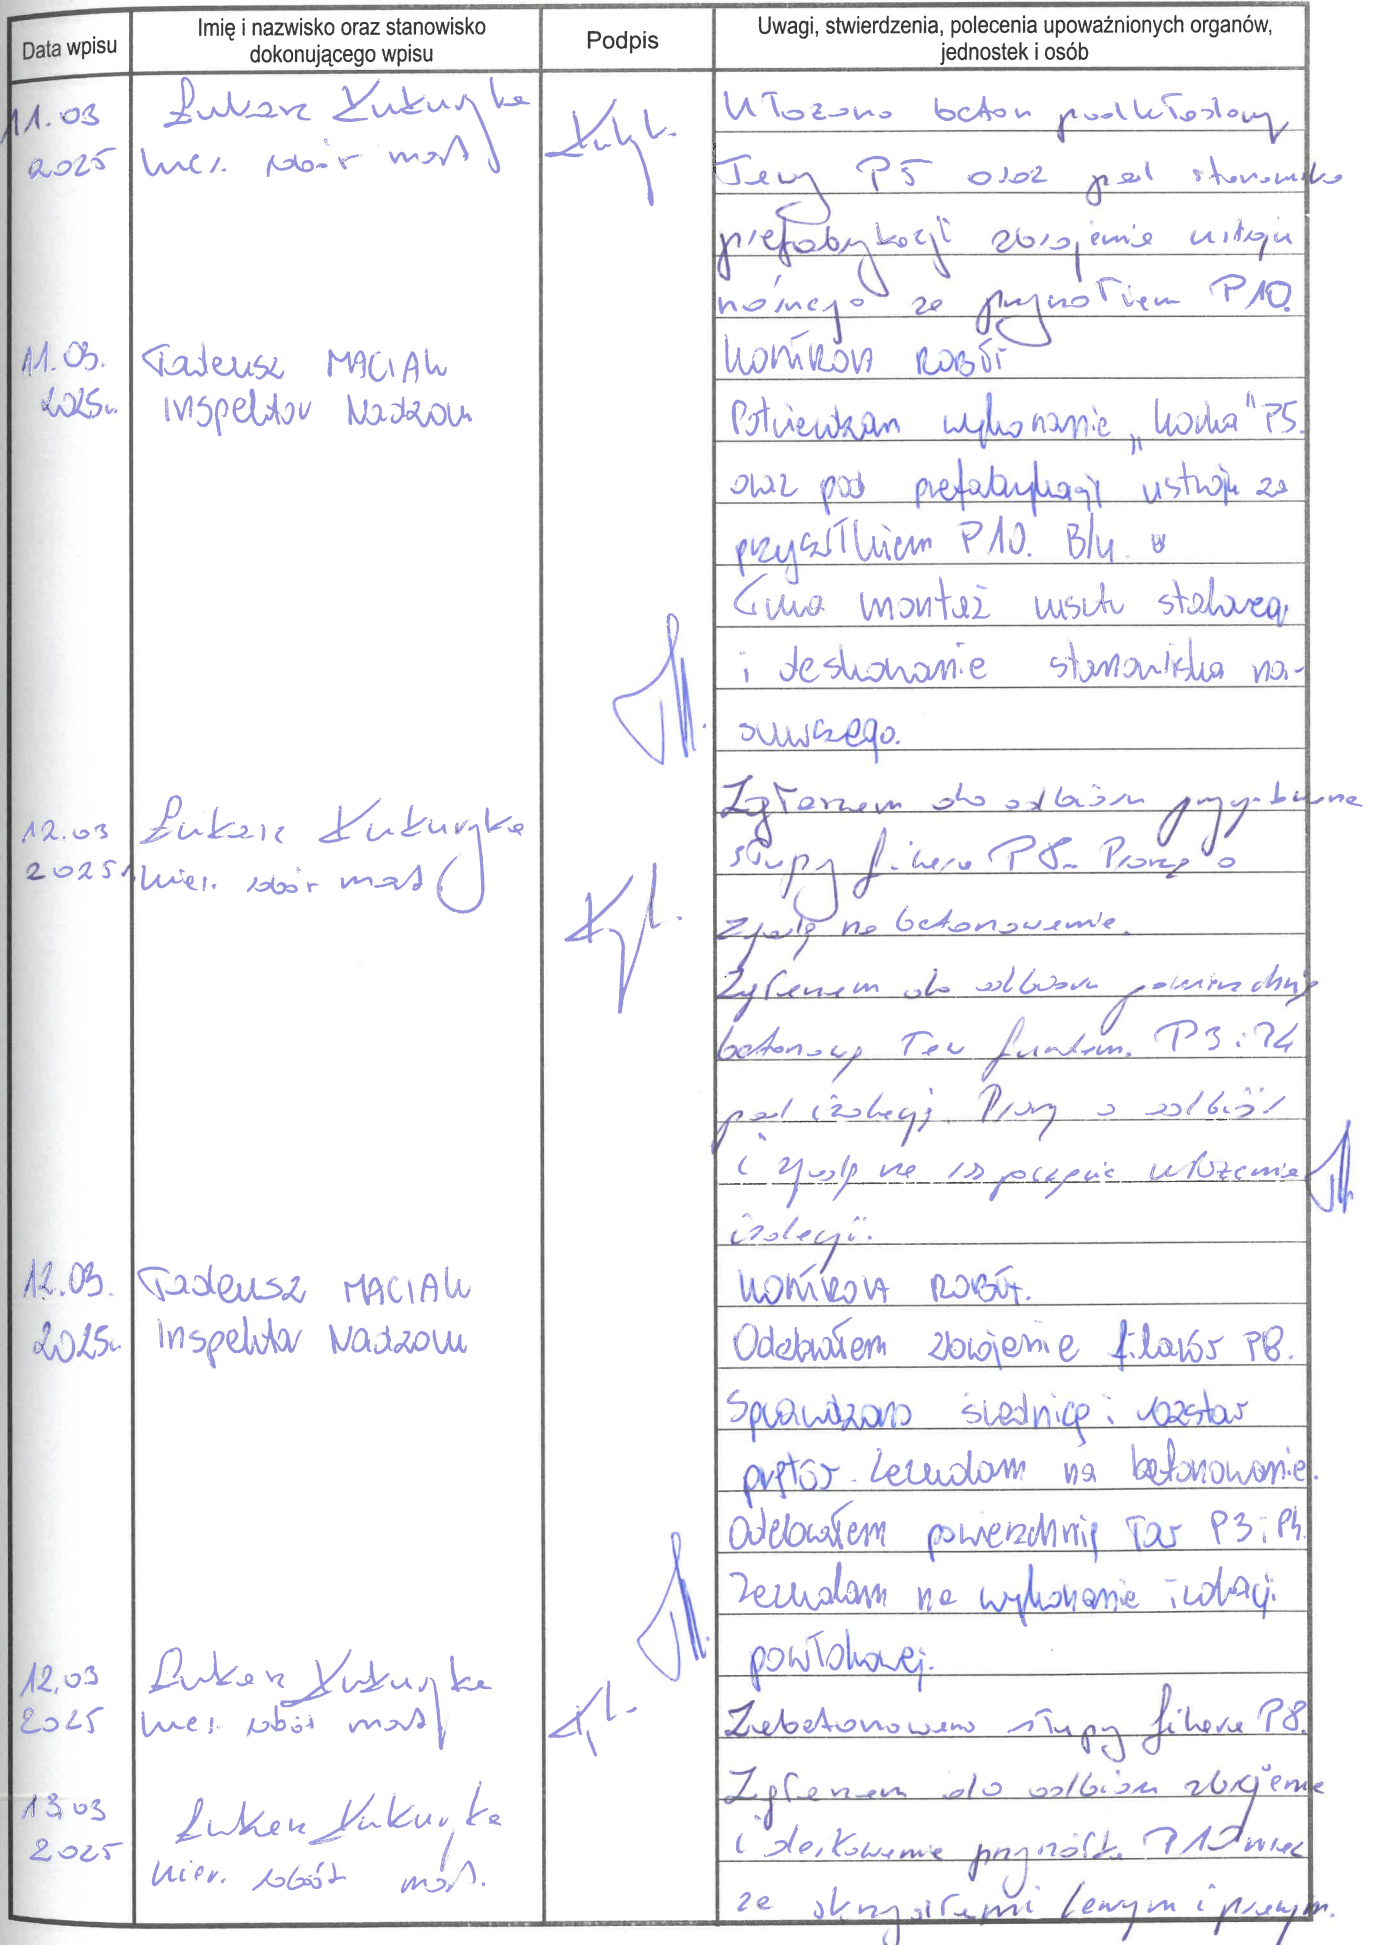 Data wpisu
Imię i nazwisko oraz stanowisko
dokonującego wpisu
Podpis
Uwagi, stwierdzenia, polecenia upoważnionych organów,
jednostek i osób
11.03
2025
Łukasz Kukuryka
kier. robót most
Ułożono beton podkładowy
ławy P5 oraz pod stanowisko
prefabrykacji zbrojenie ustroju
nośnego ze przyczółkiem P10.
11.03.
2025r.
Tadeusz MACIAK
Inspektor Nadzoru
KONTROLA ROBÓT
Potwierdzam wykonanie „korka" P5.
oraz pod prefabrykację ustroju ze
przyczółkiem P10. B/u.
montaż stalowego
i deskowanie stanowiska na-
suwczego.
12.03
2025r.
Łukasz Kukuryka
kier. robót most
Zgłaszam do odbioru
słupy filara P8. Proszę o
zgodę na betonowanie.
Zgłaszam do odbioru powierzchnię
betonową ław fundam. P3 i P4
pod izolację. Proszę o odbiór
i zgodę na rozpoczęcie ułożenia
izolacji.
12.03.
2025r.
Tadeusz MACIAK
Inspektor Nadzoru
KONTROLA ROBÓT.
Odebrałem zbrojenie filarów P8.
Sprawdzono średnicę i rozstaw
prętów. Zezwalam na betonowanie.
Odebrałem powierzchnię ław P3 i P4.
Zezwalam na wykonanie izolacji
powłokowej.
12.03
2025
Łukasz Kukuryka
kier. robót most
Zabetonowano słupy filara P8.
13.03
2025
Łukasz Kukuryka
kier. robót most.
Zgłaszam do odbioru zbrojenie
i deskowanie przyczółka P10 wraz
ze skrzydłami lewym i prawym.